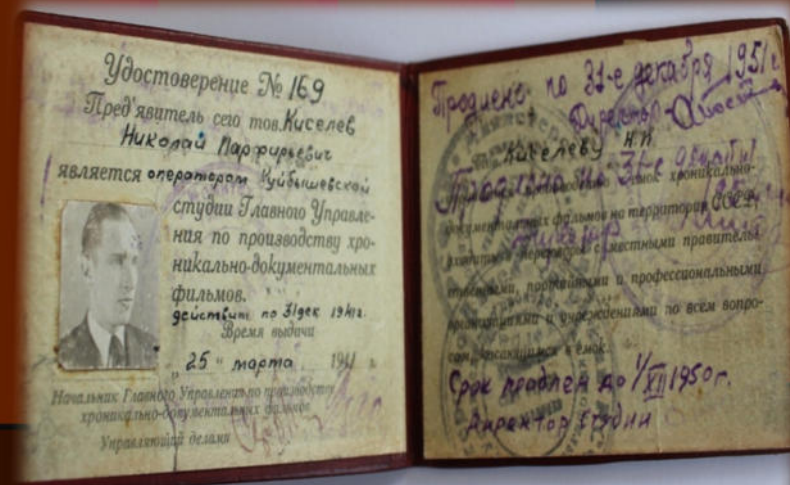 Удостоверение № 169
Пред'явитель сего тов. Киселев
Николай Парфирьевич
является оператором Куйбышевской
студии Главного Управле-
ния по производству хро-
никально-документальных
фильмов.
действит. по 31 дек
Время выдачи
„25" марта
Начальник Главного Управления по производству
хроникально-документальных фильмов
Управляющий делами
Продлено по 31-е декабря 1951 г.
Директор
Киселеву Н.П.
Продлено по 31-е декабря
хроникально-
документальных фильмов на территории СССР,
с местными правитель-
ственными, партийными и профессиональными
организациями и учреждениями по всем вопро-
сам, касающимся с'емок.
Срок продлен до 1/XII 1950 г.
Директор студии